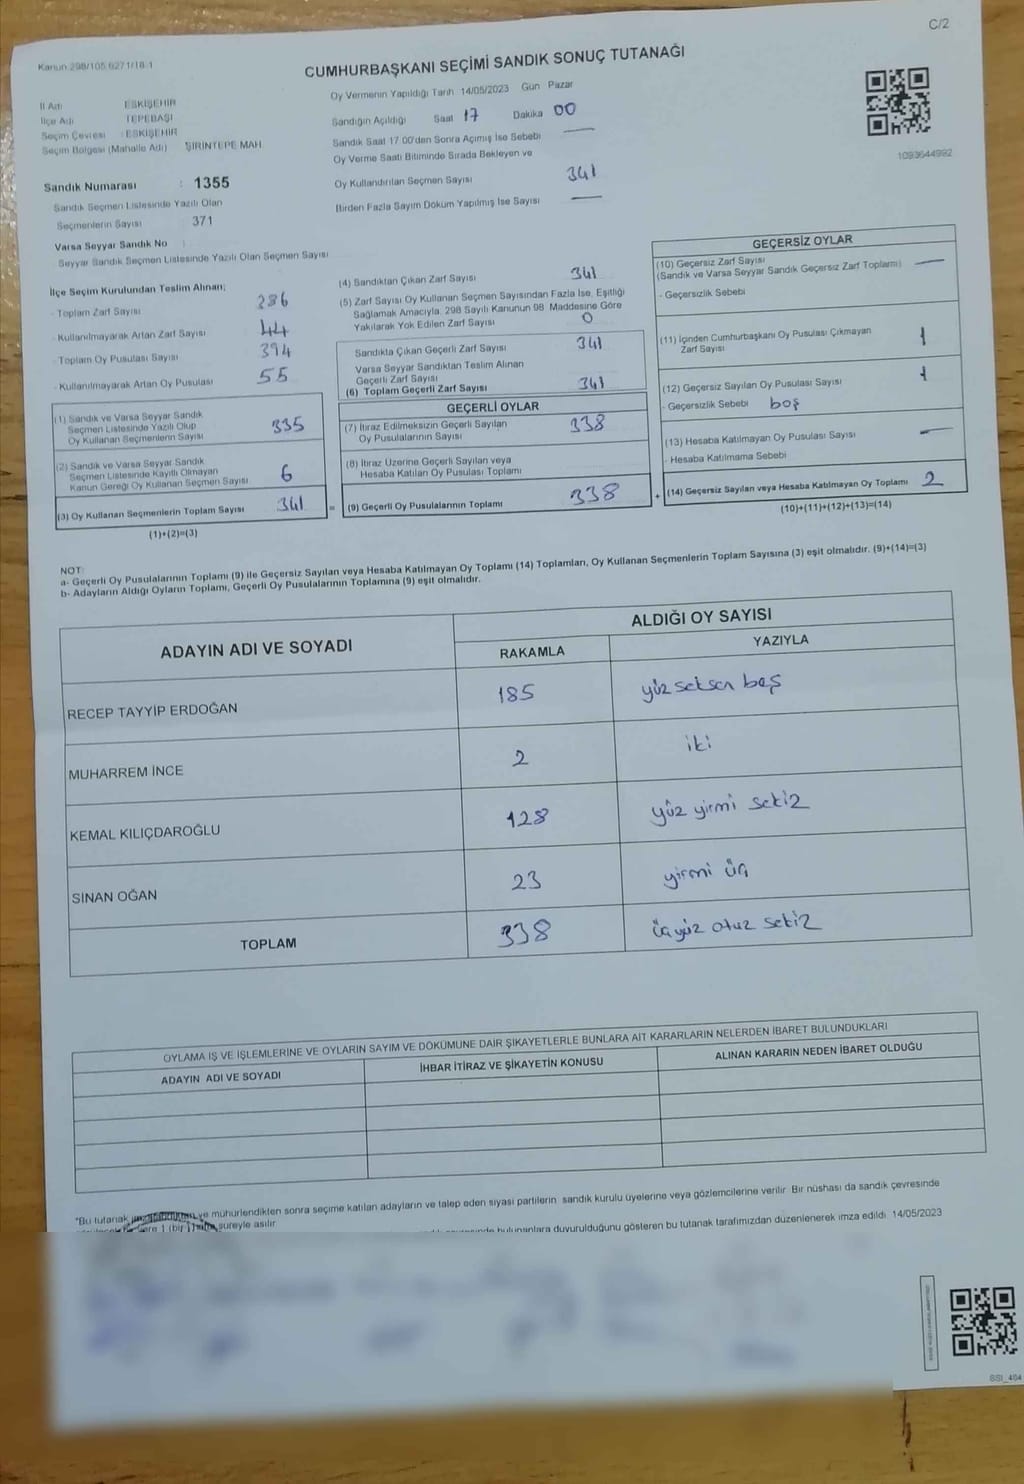 C/2
Kanun 298/105 6271/18 1
CUMHURBAŞKANI SEÇİMİ SANDIK SONUÇ TUTANAĞI
İl Adı ESKİŞEHİR
İlçe Adı TEPEBAŞI
Seçim Çevresi : ESKİŞEHİR
Seçim Bölgesi (Mahalle Adı) ŞİRİNTEPE MAH.
Sandık Numarası : 1355
Sandık Seçmen Listesinde Yazılı Olan
Seçmenlerin Sayısı 371
Varsa Seyyar Sandık No
Seyyar Sandık Seçmen Listesinde Yazılı Olan Seçmen Sayısı
Oy Vermenin Yapıldığı Tarih 14/05/2023 Gün Pazar
Sandığın Açıldığı Saat 17 Dakika 00
Sandık Saat 17 00'den Sonra Açımış İse Sebebi —
Oy Verme Saati Bitiminde Sırada Bekleyen ve
Oy Kullandırılan Seçmen Sayısı 341
Birden Fazla Sayım Döküm Yapılmış İse Sayısı —
1093644992
İlçe Seçim Kurulundan Teslim Alınan;
- Toplam Zarf Sayısı 286
- Kullanılmayarak Artan Zarf Sayısı 44
- Toplam Oy Pusulası Sayısı 394
- Kullanılmayarak Artan Oy Pusulası 55
(1) Sandık ve Varsa Seyyar Sandık
Seçmen Listesinde Yazılı Olup
Oy Kullanan Seçmenlerin Sayısı 335
(2) Sandık ve Varsa Seyyar Sandık
Seçmen Listesinde Kayıtlı Olmayan
Kanun Gereği Oy Kullanan Seçmen Sayısı 6
(3) Oy Kullanan Seçmenlerin Toplam Sayısı 341
(1)+(2)=(3)
(4) Sandıktan Çıkan Zarf Sayısı 341
(5) Zarf Sayısı Oy Kullanan Seçmen Sayısından Fazla İse, Eşitliği
Sağlamak Amacıyla, 298 Sayılı Kanunun 98. Maddesine Göre
Yakılarak Yok Edilen Zarf Sayısı 0
Sandıkta Çıkan Geçerli Zarf Sayısı 341
Varsa Seyyar Sandıktan Teslim Alınan
Geçerli Zarf Sayısı
(6) Toplam Geçerli Zarf Sayısı 341
GEÇERLİ OYLAR
(7) İtiraz Edilmeksizin Geçerli Sayılan
Oy Pusulalarının Sayısı 338
(8) İtiraz Üzerine Geçerli Sayılan veya
Hesaba Katılan Oy Pusulası Toplamı
= (9) Geçerli Oy Pusulalarının Toplamı 338
GEÇERSİZ OYLAR
(10) Geçersiz Zarf Sayısı
(Sandık ve Varsa Seyyar Sandık Geçersiz Zarf Toplamı) —
- Geçersizlik Sebebi
(11) İçinden Cumhurbaşkanı Oy Pusulası Çıkmayan
Zarf Sayısı 1
(12) Geçersiz Sayılan Oy Pusulası Sayısı 1
- Geçersizlik Sebebi boş
(13) Hesaba Katılmayan Oy Pusulası Sayısı —
- Hesaba Katılmama Sebebi
+ (14) Geçersiz Sayılan veya Hesaba Katılmayan Oy Toplamı 2
(10)+(11)+(12)+(13)=(14)
NOT:
a- Geçerli Oy Pusulalarının Toplamı (9) ile Geçersiz Sayılan veya Hesaba Katılmayan Oy Toplamı (14) Toplamları, Oy Kullanan Seçmenlerin Toplam Sayısına (3) eşit olmalıdır. (9)+(14)=(3)
b- Adayların Aldığı Oyların Toplamı, Geçerli Oy Pusulalarının Toplamına (9) eşit olmalıdır.
ADAYIN ADI VE SOYADI ALDIĞI OY SAYISI
RAKAMLA YAZIYLA
RECEP TAYYİP ERDOĞAN 185 yüz seksen beş
MUHARREM İNCE 2 iki
KEMAL KILIÇDAROĞLU 128 yüz yirmi sekiz
SİNAN OĞAN 23 yirmi üç
TOPLAM 338 üçyüz otuz sekiz
OYLAMA İŞ VE İŞLEMLERİNE VE OYLARIN SAYIM VE DÖKÜMÜNE DAİR ŞİKAYETLERLE BUNLARA AİT KARARLARIN NELERDEN İBARET BULUNDUKLARI
ADAYIN ADI VE SOYADI İHBAR İTİRAZ VE ŞİKAYETİN KONUSU ALINAN KARARIN NEDEN İBARET OLDUĞU
"Bu tutanak ve mühürlendikten sonra seçime katılan adayların ve talep eden siyasi partilerin sandık kurulu üyelerine veya gözlemcilerine verilir Bir nüshası da sandık çevresinde
süreyle asılır bulunanlara duyurulduğunu gösteren bu tutanak tarafımızdan düzenlenerek imza edildi. 14/05/2023